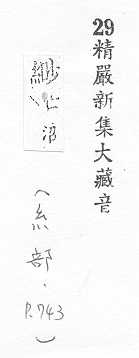 29精嚴新集大藏音
(糸部.P.743)